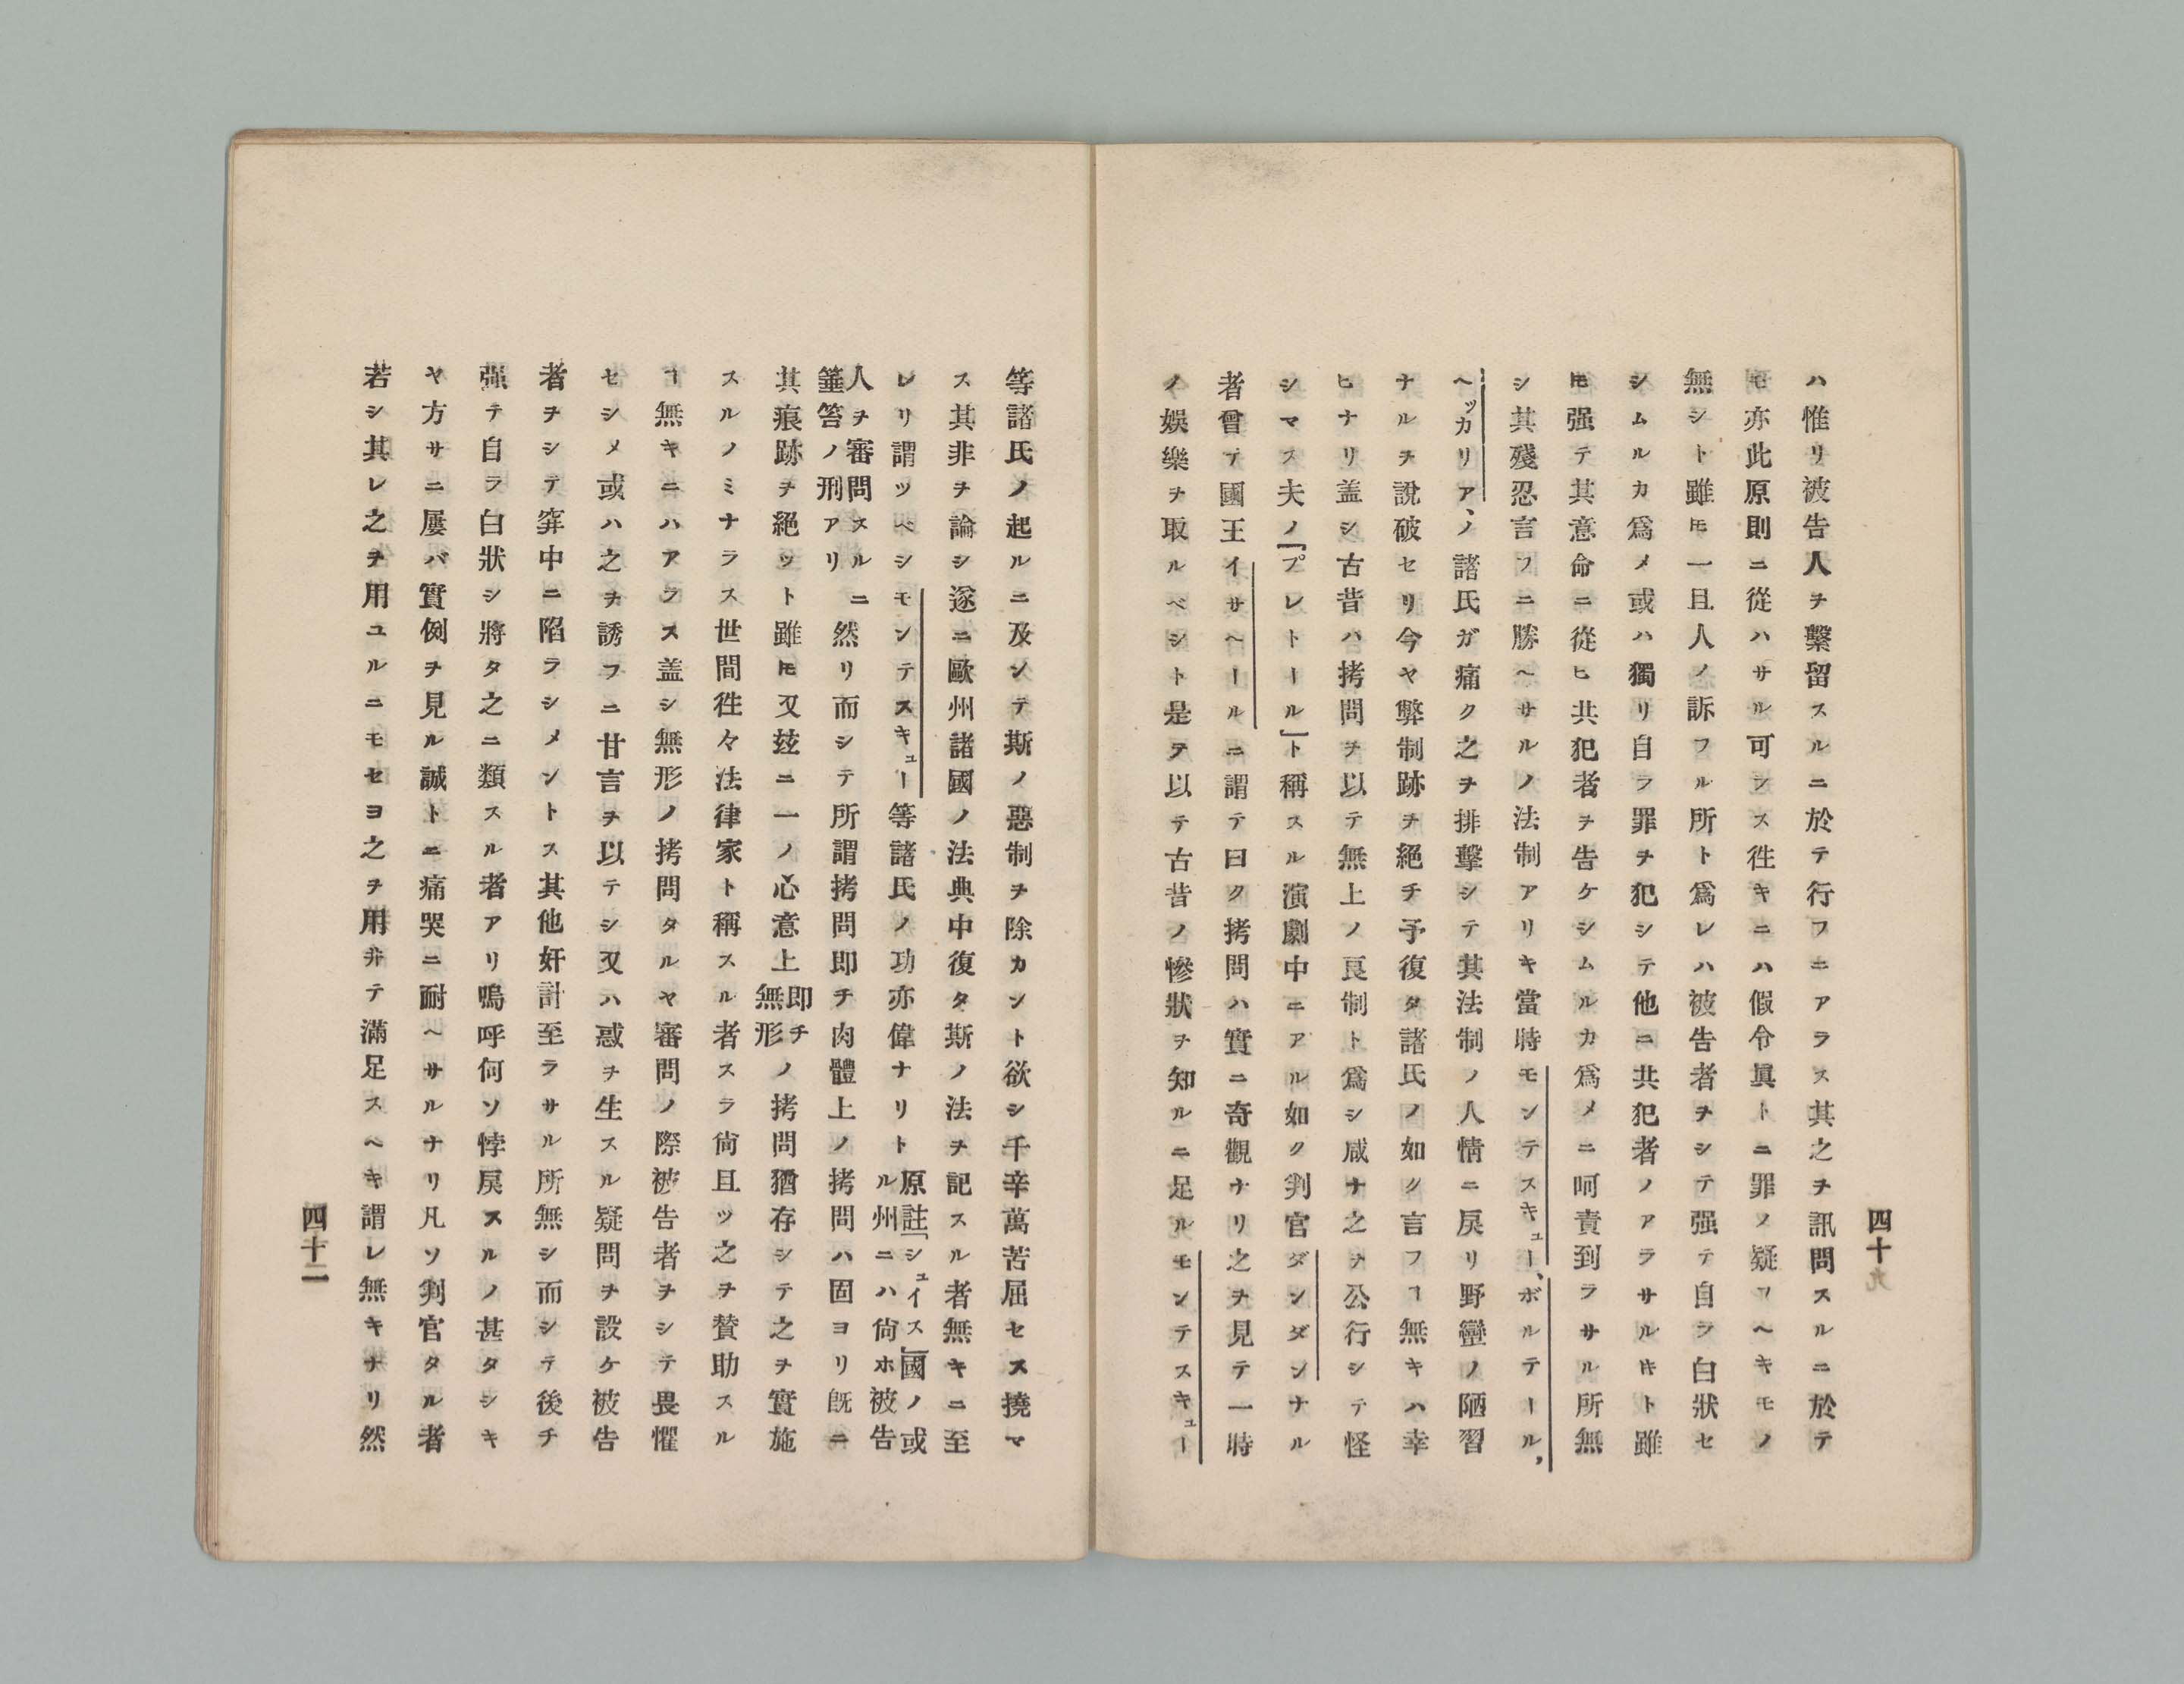 四十
ハ惟リ被告人ヲ繫留スルニ於テ行フニアラス其之ヲ訊問スルニ於テ
モ亦此原則ニ從ハサル可シス徃キニハ假令眞トニ罪ノ疑フヘキモノ
無シト雖𪜈一且人ノ訴フル所ト爲レハ被告者ヲシテ强テ自ラ白狀セ
シムルカ爲メ或ハ獨リ自ラ罪ヲ犯シテ他ニ共犯者ノアラサルキト雖
𪜈强テ其意命ニ從ヒ共犯者ヲ告ケシムルカ爲メニ呵責到ラサル所無
シ其殘忍言フニ勝ヘサルノ法制アリキ當時モンテスキュー、ボルテール,
ヘッカリア、ノ諸氏ガ痛ク之ヲ排擊シテ其法制ノ人情ニ戾リ野蠻ノ陋習
ナルヲ說破セリ今ヤ弊制跡ヲ絕チ予復タ諸氏ノ如ク言フヿ無キハ幸
ヒナリ盖シ古昔ハ拷問ヲ以テ無上ノ良制ト爲シ咸ナ之ヲ公行シテ怪
シマス夫ノ「プレトール」ト稱スル演劇中ニアル如ク判官ダンダンナル
者曾テ國王イサヘールニ謂テ曰ク拷問ハ實ニ奇觀ナリ之ヲ見テ一時
ノ娛樂ヲ取ルベシト是テ以テ古昔ノ慘狀ヲ知ルニ足ルモンテスキュー
等諸氏ノ起ルニ及ンテ斯ノ惡制ヲ除カント欲シ千辛萬苦屈セス撓マ
ス其非ヲ論シ遂ニ歐州諸國ノ法典中復タ斯ノ法ヲ記スル者無キニ至
レリ謂ツベシモンテスキュー等諸氏ノ功亦偉ナリト原註「シュイス」國ノ或ル州ニハ尙ホ被告
人ヲ審問スルニ箠笞ノ刑アリ然リ而シテ所謂拷問即チ肉體上ノ拷問ハ固ヨリ旣ニ
其痕跡ヲ絕ツト雖𪜈又玆ニ一ノ心意上即チ無形ノ拷問猶存シテ之ヲ實施
スルノミナラス世間徃々法律家ト稱スル者スラ尙且ツ之ヲ賛助スル
ヿ無キニハアラス盖シ無形ノ拷問タルヤ審問ノ際被告者ヲシテ畏懼
セシメ或ハ之ヲ誘フニ甘言ヲ以テシ又ハ惑ヲ生スル疑問ヲ設ケ被告
者ヲシテ穽中ニ陷ラシメントス其他奸計至ラサル所無シ而シテ後チ
强テ自ラ白狀シ將タ之ニ類スル者アリ嗚呼何ソ悖戾スルノ甚タシキ
ヤ方サニ屢バ實例ヲ見ル誠トニ痛哭ニ耐ヘサルナリ凡ソ判官タル者
若シ其レ之ヲ用ユルニモセヨ之ヲ用井テ滿足スヘキ謂レ無キナリ然
四十二